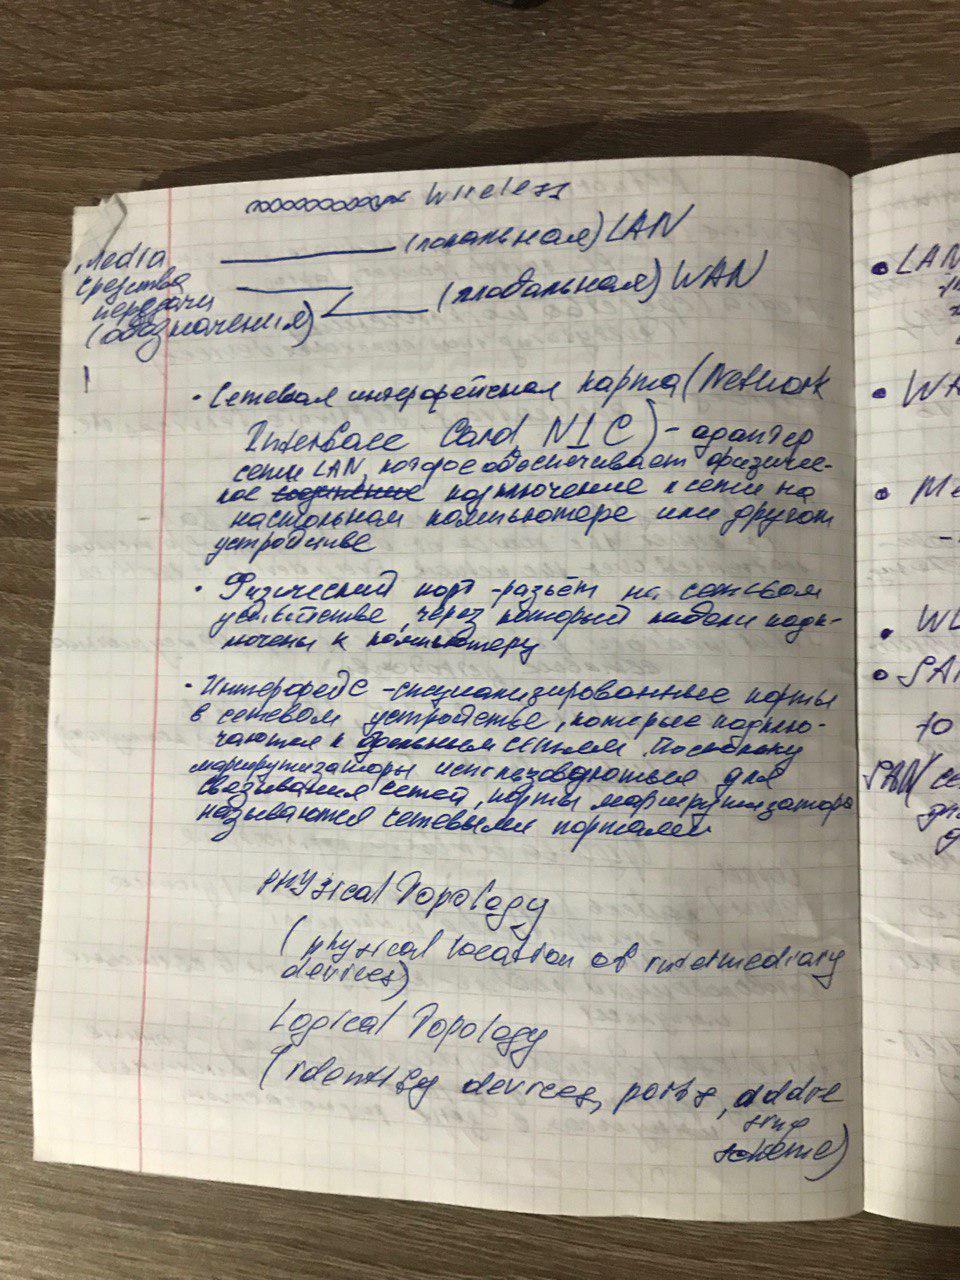 Wireless
(локальная) LAN
Media
средства
передачи
(глобальная) WAN
(обозначения)
• Сетевая интерфейсная карта (Network
Interface Card, NIC) - адаптер
сети LAN, которое обеспечивает физичес-
кое соединение подключение к сети на
настольном компьютере или другом
устройстве
• Физический порт - разъём на сетевом
устройстве, через который кабели подк-
лючены к компьютеру
• Интерфейс - специализированные порты
в сетевом устройстве, которые подклю-
чаются к сетям. Поскольку
маршрутизаторы для
связывания сетей, порты маршрутизатора
называются сетевыми портами
Physical Topology
(physical location of intermediary
devices)
Logical Topology
(identify devices, ports, addre
ssing
scheme)
• LAN
• WA
• Me
• WL
• SAN
to
SAN (се